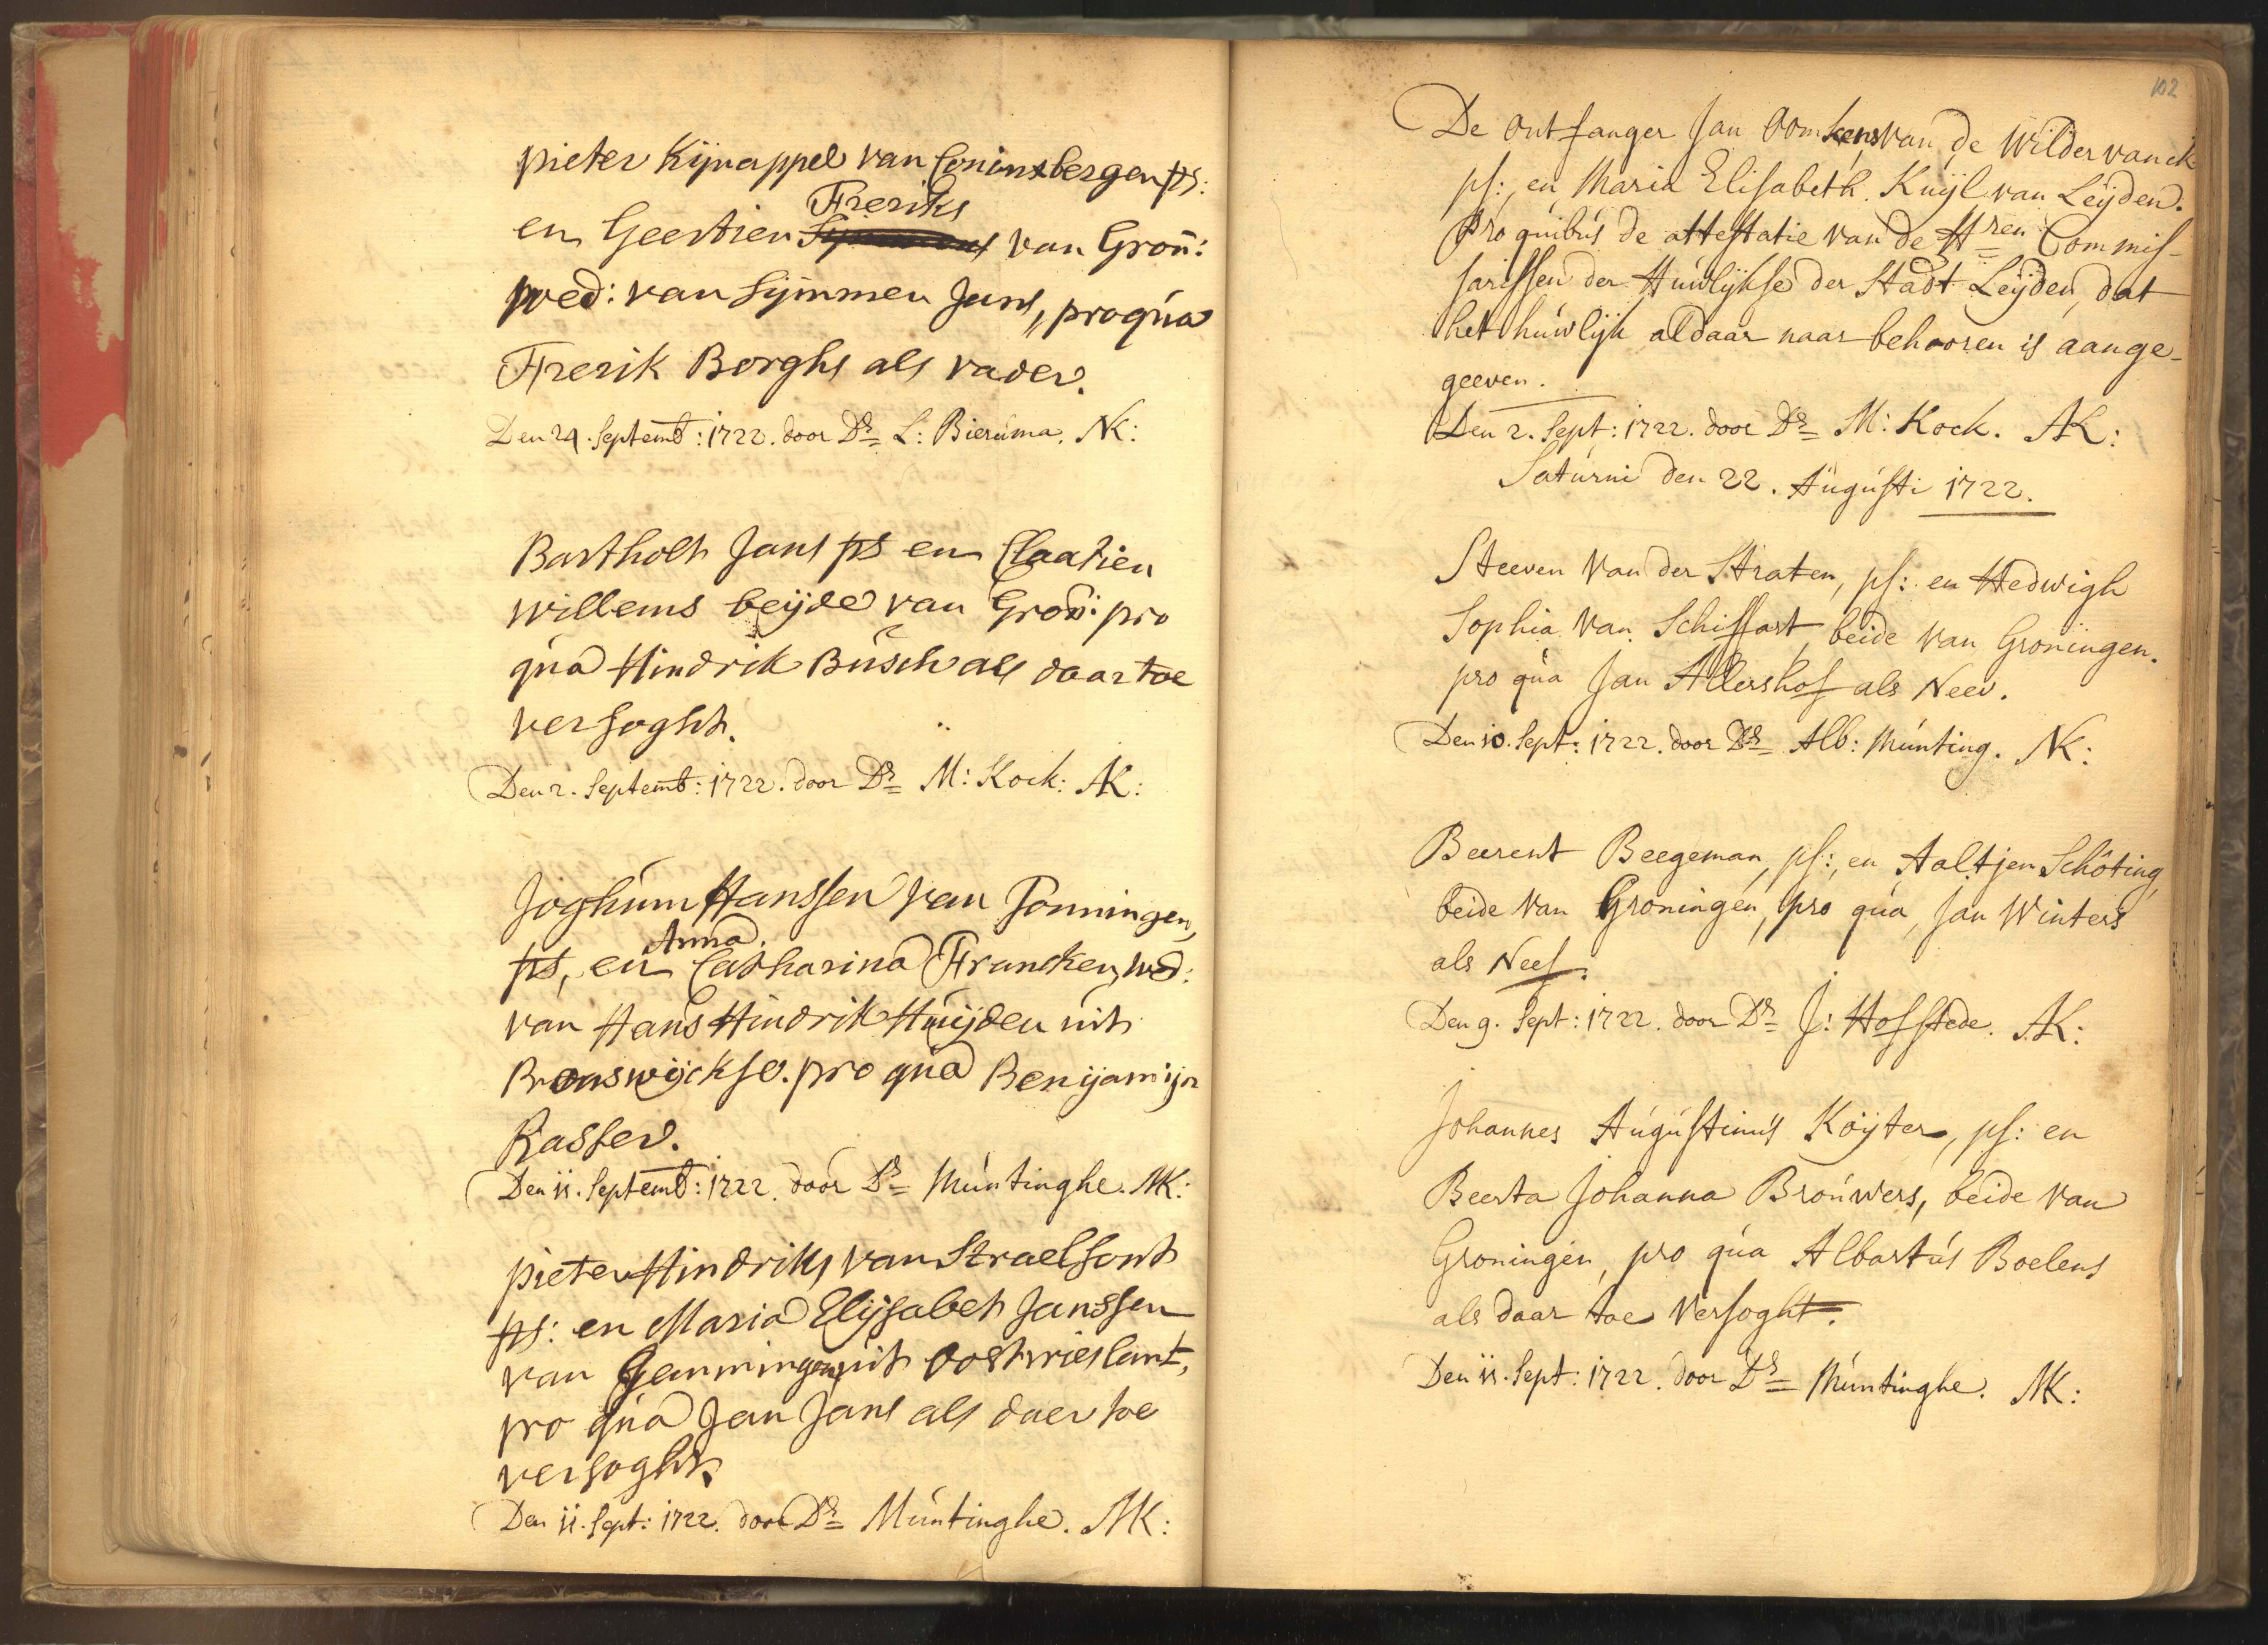 pieter Kijnappel van Coninxbergen ps:
Freriks
en Geertien van Gron̄:
wed: van Sijmmen Jans, pro qúa
Frerik Borghs als vader.
Den 24. Septemb: 1722. door Dṣ L: Bierúma. NK:
Bartholt Jans ps en Claatien
willems beijde van Gron̄: pro
qúa Hindrik Búsch als daar toe
versoght.
Den 2. Septemb: 1722. door Ds M: Kock: AK:
Joghúm Hanssen van Tonningen,
Anna
ps, en Catharina Francken, wed:
van Hans Hindrik Húijden úit
Bronswijckse. pro qúa Benijamijn
Rasser.
Den 11. Septemb: 1722. door Ds Múntinghe. NK:
pieter Hindriks van Straelsont
ps: en Maria Elijsabet Janssen
van Gemmingen úit oostvrieslant,
pro qúa Jan Jans als daer toe
versoght.
Den 11. Sept: 1722. door Ds Múntinghe. NK:
102
De ontfanger Jan Oomkens van de Wildervanck
ps:, en Maria Elisabeth Kuijl van Leijden.
Pro quibús de attestatie van de Hren Commis-
sarissen der Húwlijkse der Stadt Leijden, dat
het húwlijk aldaar naar behooren is aange-
geeven.
Den 2. Sept: 1722. door Ds M: Kock. AK:
Satúrni den 22. Augústi 1722.
Steeven Van der Straten, ps: en Hedwigh
Sophia Van Schiffart, beide Van Groningen.
pro qúa Jan Allershof als Neev.
Den 10. Sept: 1722. door Ds Alb: Múnting. NK:
Beerent Beegeman, ps:, en Aaltjen Schöting,
beide Van Groningen, pro qúa, Jan Winters
als Neef.
Den 9. Sept: 1722. door Ds J: Hofstede. AK:
Johannes Aúgústinús Koijter, ps: en
Beerta Johanna Broúwers, beide van
Groningen, pro qúa Albartús Boelens
als daar toe Versoght.
Den 11. Sept: 1722. door Ds Múntinghe. NK: